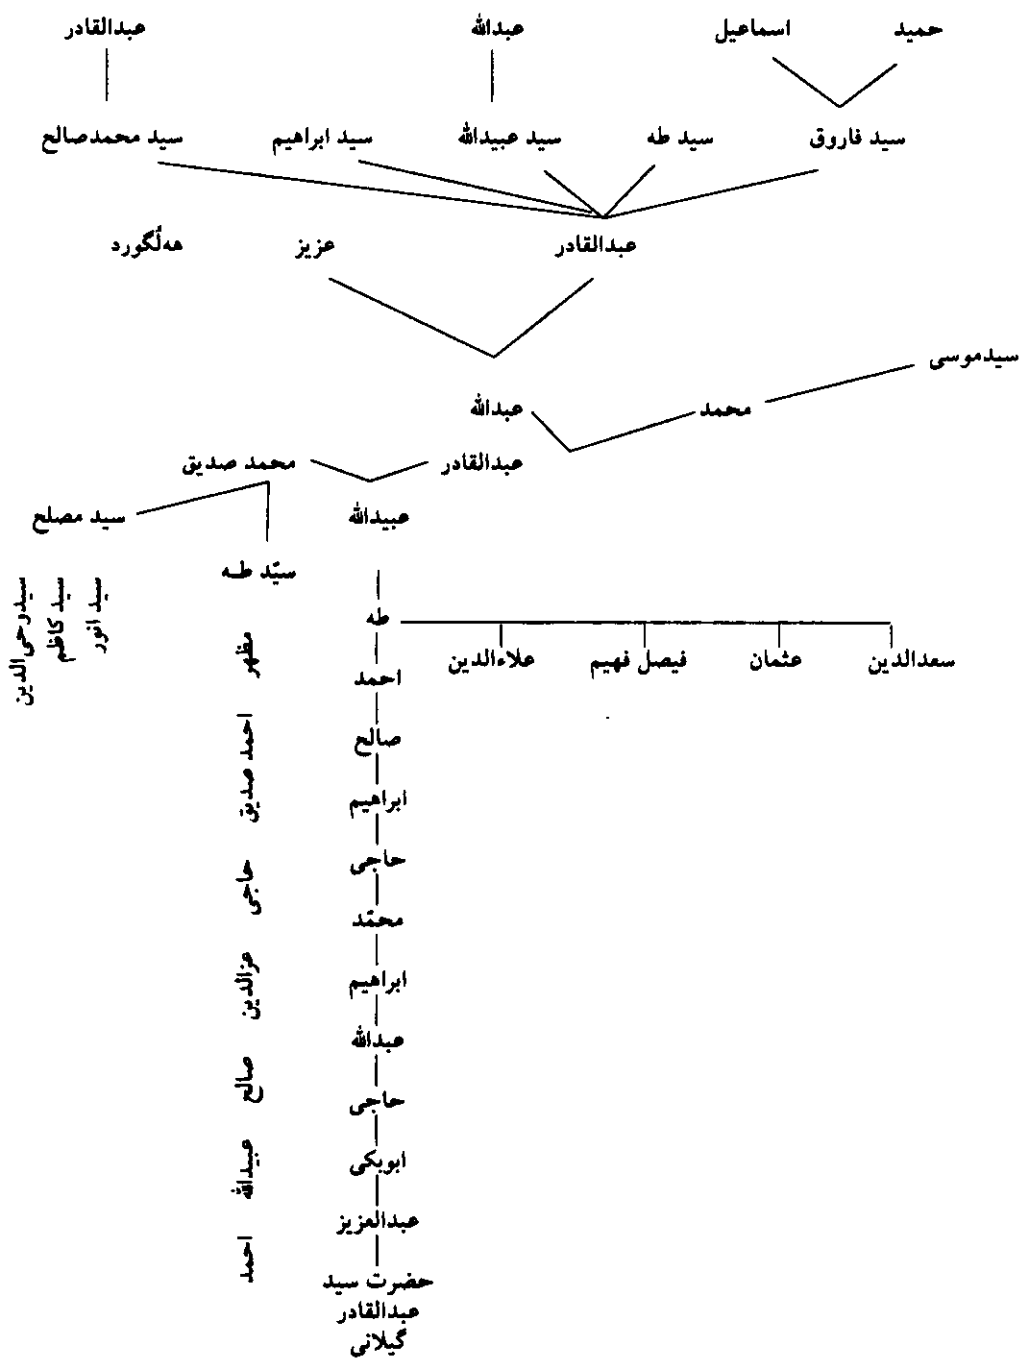 حمید اسماعیل عبدالله عبدالقادر
سید فاروق سید طه سید عبیدالله سید ابراهیم سید محمدصالح
عبدالقادر عزیز هەڵگورد
سیدموسی
محمد عبدالله
عبدالقادر محمد صدیق
عبیدالله سید مصلح
سیّد طـه
سید انور
سید کاظم
سیدوحی‌الدین
طه
سعدالدین عثمان فیصل فهیم علاءالدین
احمد
صالح
ابراهیم
حاجی
محمّد
ابراهیم
عبدالله
حاجی
ابوبکی
عبدالعزیز
حضرت سید
عبدالقادر
گیلانی
مظهر
احمد صدیق
حاجی
عزالدین
صالح
عبیدالله
احمد